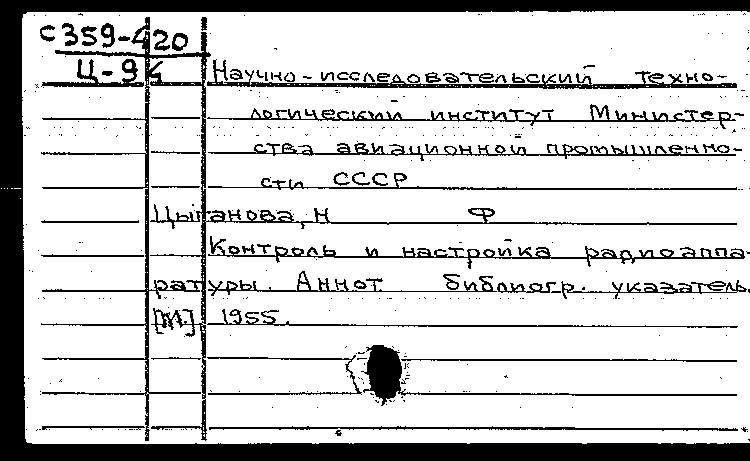 С359-420
Ц-94
Научно-исследовательский техно-
логический институт Министер-
ства авиационной промышленно-
сти СССР
Цыганова, Н Ф
Контроль и настройка радиоаппа-
ратуры. Аннот. библиогр. указатель.
[М.], 1955.